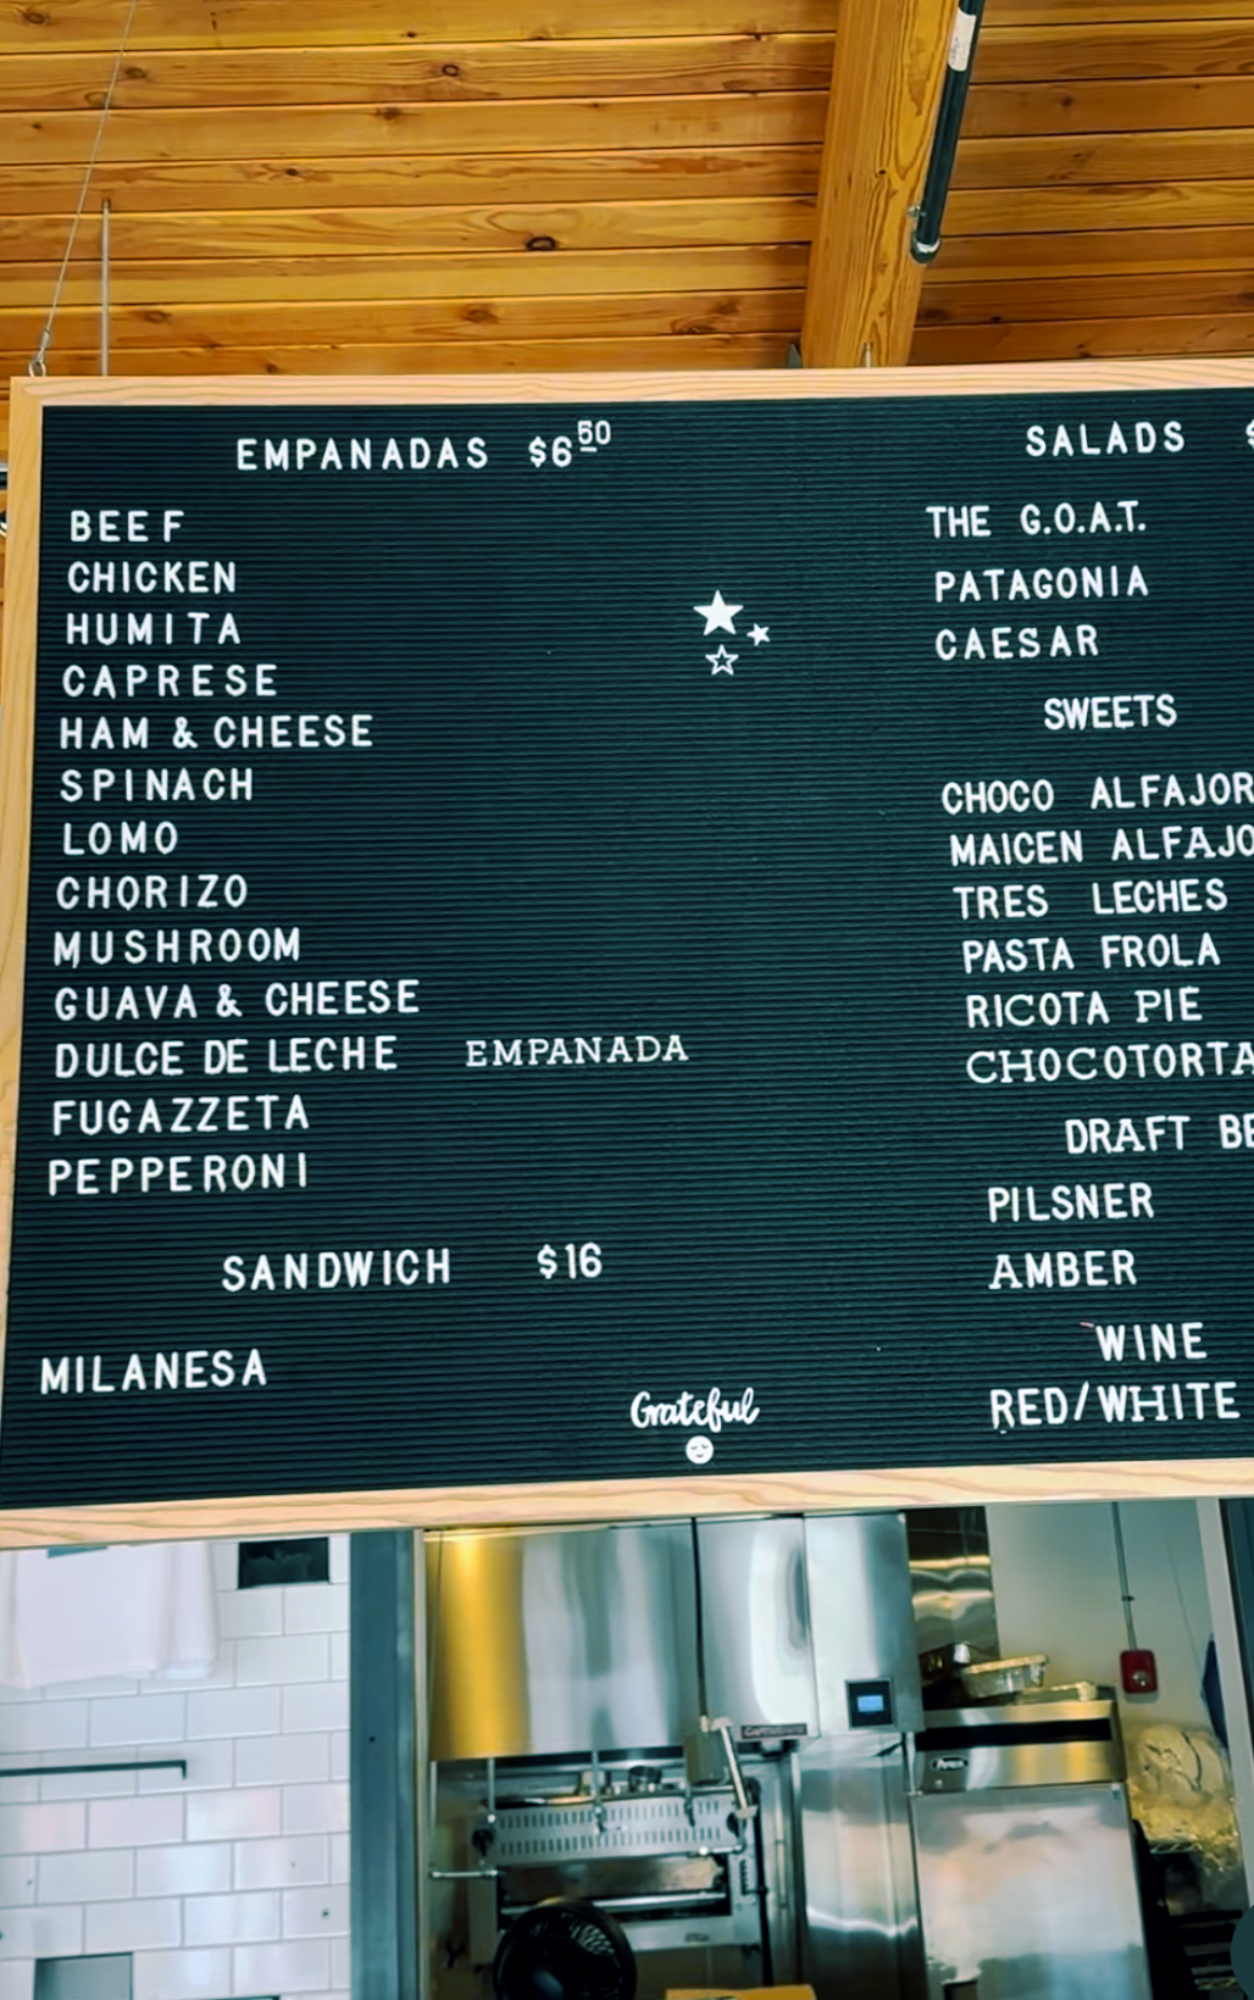 EMPANADAS $6.50
BEEF
CHICKEN
HUMITA
CAPRESE
HAM & CHEESE
SPINACH
LOMO
CHORIZO
MUSHROOM
GUAVA & CHEESE
DULCE DE LECHE EMPANADA
FUGAZZETA
PEPPERONI
SANDWICH $16
MILANESA
Grateful
SALADS $
THE G.O.A.T.
PATAGONIA
CAESAR
SWEETS
CHOCO ALFAJOR
MAICEN ALFAJO
TRES LECHES
PASTA FROLA
RICOTA PIE
CHOCOTORTA
DRAFT BE
PILSNER
AMBER
WINE
RED/WHITE